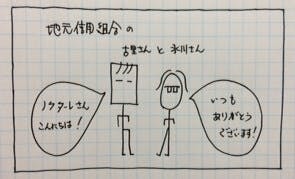 地元信用組合の
古里さん と 氷川さん
ノタターレさん
こんにちは!
いつも
ありがとう
ございます!